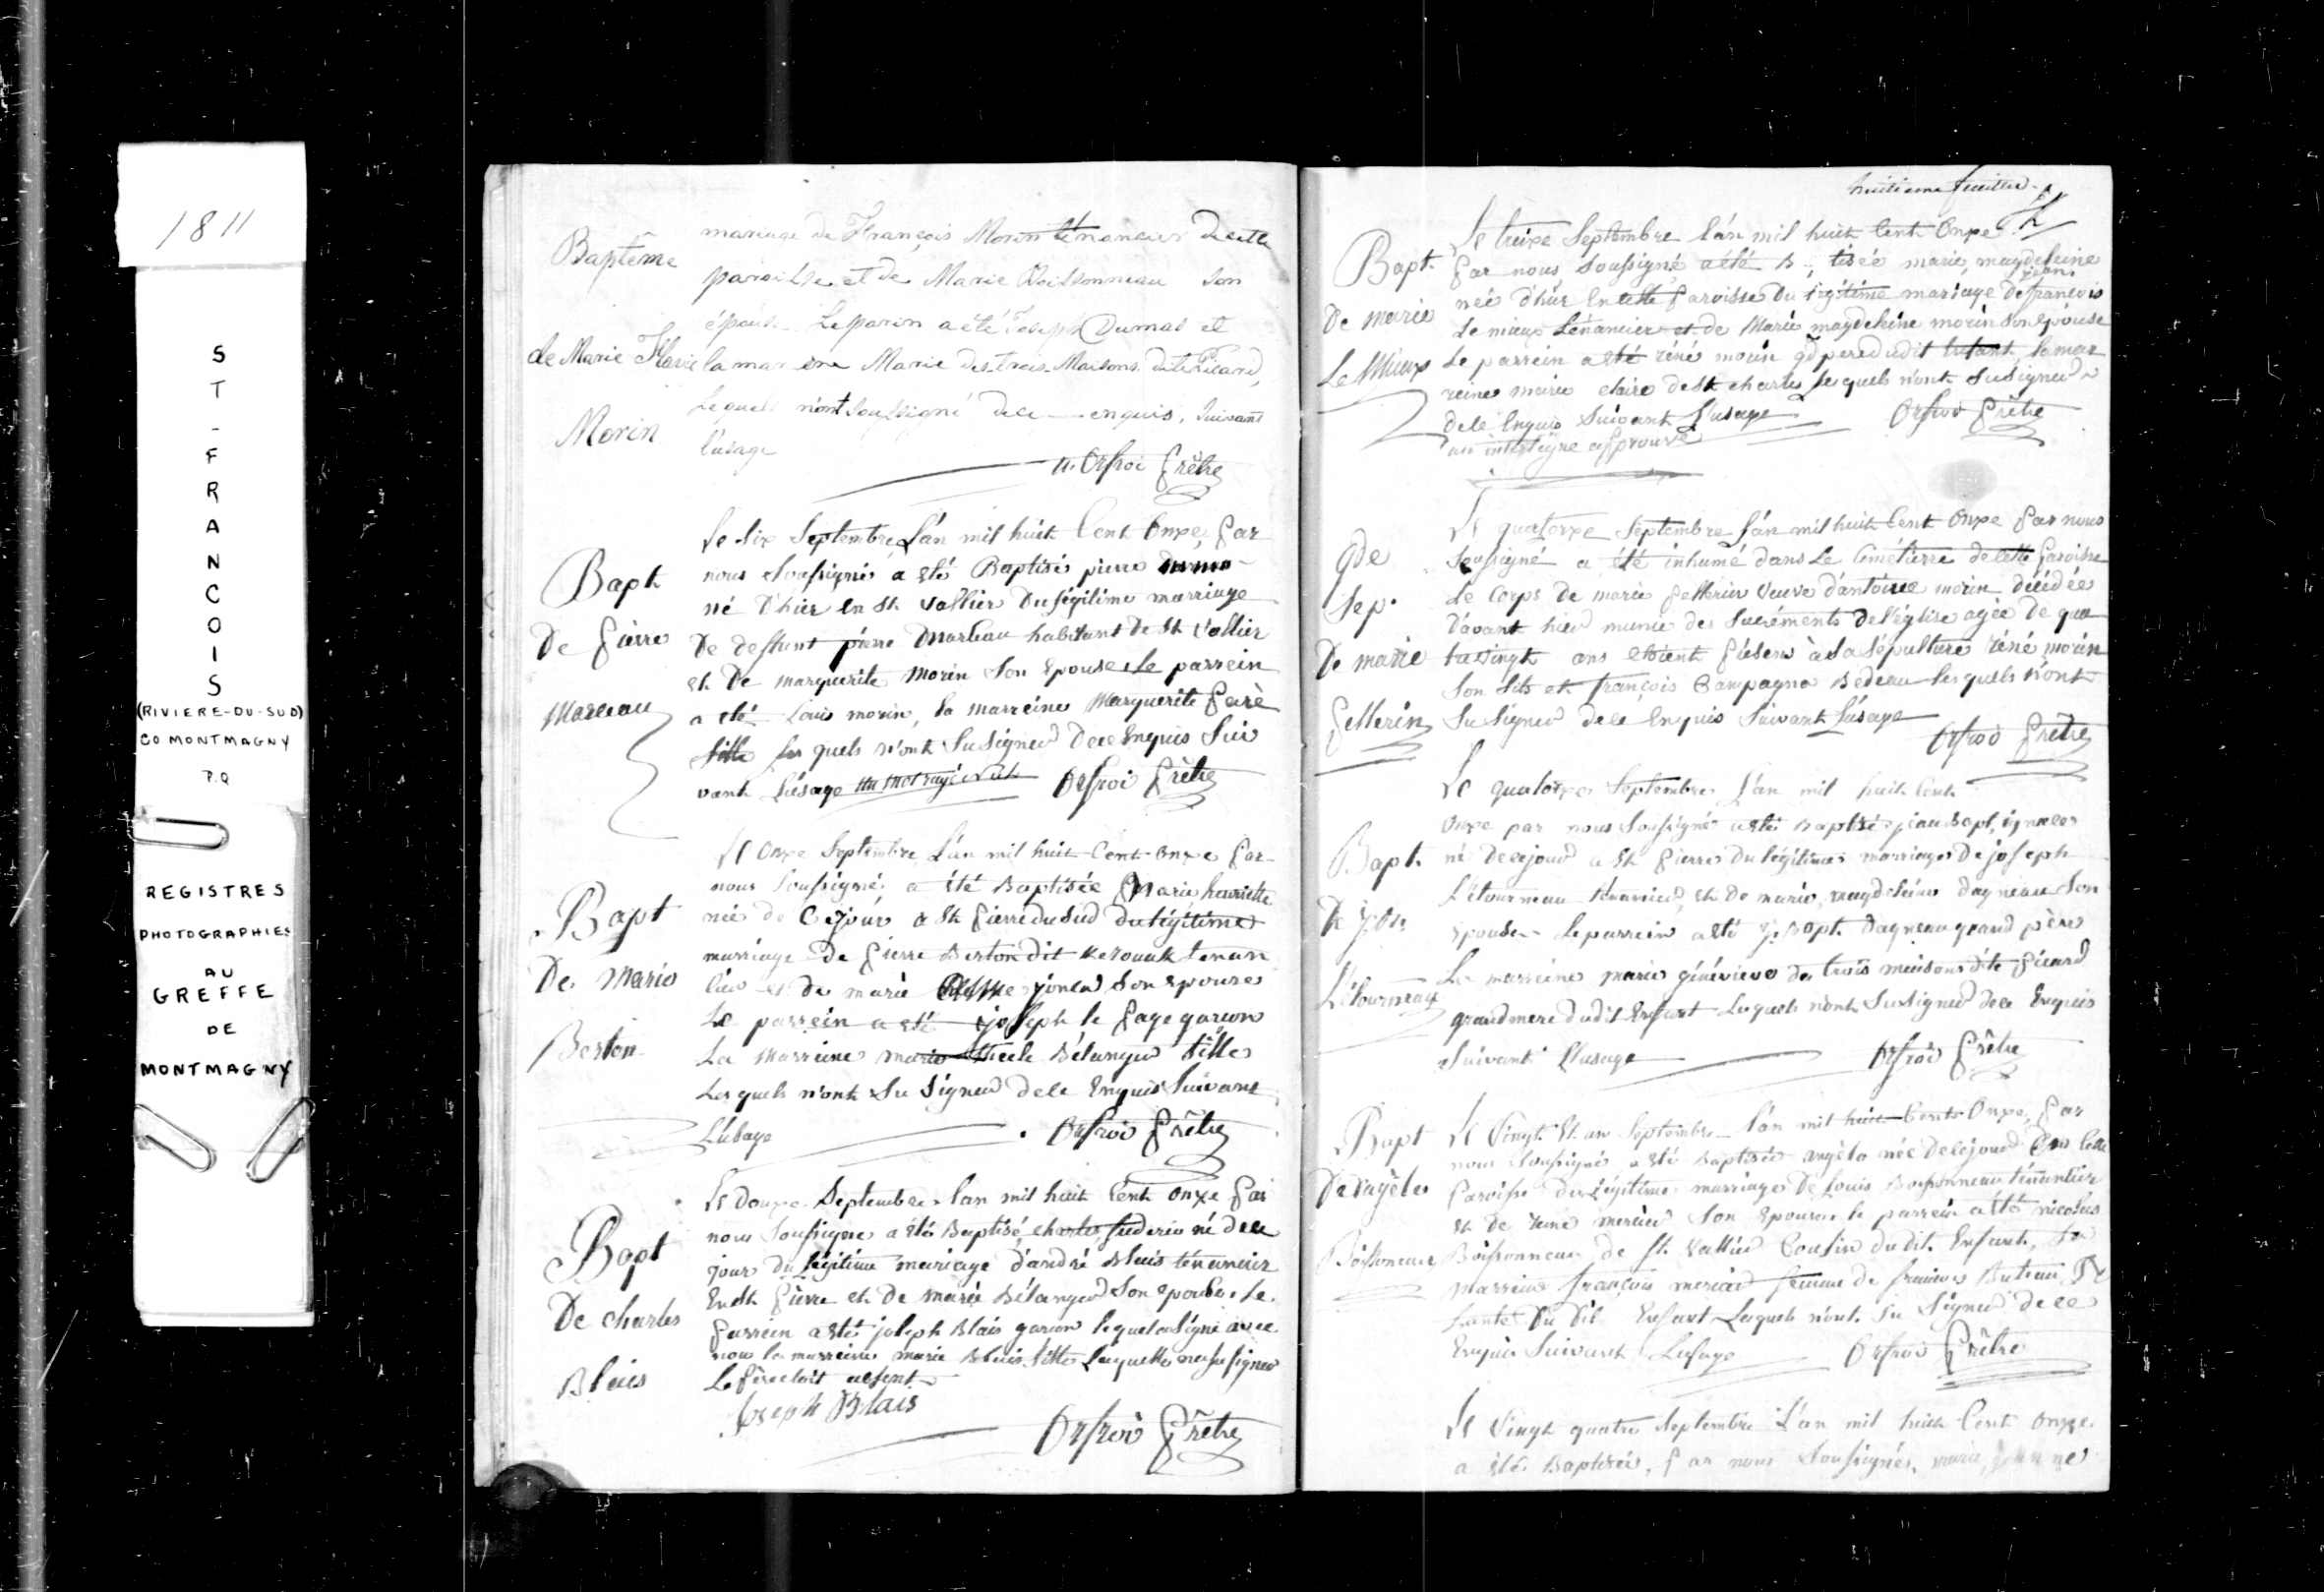 1811
ST-FRANCOIS
(RIVIERE-DU-SUD)
CO MONTMAGNY
P.Q
REGISTRES
PHOTOGRAPHIES
AU
GREFFE
DE
MONTMAGNY
Baptême
de Marie Flavie
Morin
mariage de François Morin ténancier de cette
paroisse et de Marie Boissonneau son
épouse. Le parin a été Joseph Dumas et
la mareine Marie des trois Maisons dite Picard,
lequels n'ont soussigné de ce enquis, suivant
l'usage
Orfroi prêtre
Bapt
De pierre
Marceau
Le six Septembre L'an mil huit Cent Onze, par
nous soussigné a été Baptisé pierre
né d'hier en St Vallier Du légitime marriage
De deffunt pierre Marceau habitant de St Vallier
et De marguerite Morin son Epouse. Le parrein
a été Louis morin, la marreine Marguerite paré
fille les quels n'ont Su Signer De ce Enquis Sui
vant L'usage un mot rayé nul Orfroi prêtre
Bapt
De Marie
Berton
Le Onze Septembre L'an mil huit Cent onze par
nous soussigné a été Baptisée Marie henriette
née de Ce jour à St pierre du Sud du légitime
marriage de pierre Berton dit Kerouak tenan
cier et de marie joncas Son epouse
Le parrein a été joseph le page garcon
La Marreine Bélanger fille
Les quels n'ont Su Signer de Ce Enquis Suivant
L'usage Orfroi prêtre
Bapt
De charles
Blais
Le Douze Septembre L'an mil huit Cent onze par
nous Soussigné a été Baptisé, charles frederic né de ce
jour du légitime mariage d'andré Blais ténancier
En St pierre et de marie Bélanger Son epouse. Le
parrein a été joseph Blais garcon lequel a Signé avec
nous la marreine marie Blais fille laquelle n'a su signer
Le père étoit absent
Joseph Blais
Orfroi prêtre
huitieme feuillet
Bapt.
De marie
Le Mieux
Le treize Septembre L'an mil huit Cent Onze
par nous Soussigné a été B tisée marie magdeleine
jean
née d'hier En cette paroisse Du légitime mariage De francois
Le mieux ténancier et de Marie magdeleine morin Son Epouse
Le parrein a été réné morin gd pere dudit Enfant, la mar
reine marie claire de St charles lesquels n'ont Su Signer
de ce Enquis Suivant L'usage Orfroi prêtre
un interligne approuvé
gde
Sep.
De marie
Pellerin
Le quatorze Septembre L'an mil huit Cent Onze par nous
soussigné a été inhumé dans Le Cimétierre de cette paroisse
Le Corps de marie pellerin veuve d'antoine morin décédée
d'avant hier munie des Sacréments de l'église agée de qua
tre vingt ans étoient présens à Sa Sépulture réné morin
Son fils et françois Campagna Bedeau lesquels n'ont
Su Signer de ce Enquis Suivant L'usage
Orfroi prêtre
Bapt.
De J. Bte
L'étourneau
Le quatorze Septembre L'an mil huit Cent
Onze par nous Soussigné a été Baptisé jean Bapt. ignace
né de ce jour a St pierre du légitime marriage De joseph
L'étourneau ténancier, et De marie magdeleine dagneau Son
epouse Le parrein a été j. Bapt. Dagneau grand père
La marreine marie généviève des trois maisons dite picard
grandmere dudit Enfant Lesquels n'ont Su Signer de ce Enquis
Suivant L'usage Orfroi prêtre
Bapt
D'angèle
Boissoneau
Le Vingt Et un Septembre L'an mil huit Cent Onze, par
nous Soussigné a été Baptisée angèle née De ce jour En Cette
paroisse du légitime marriage De Louis Boissonneau ténancier
et de mercier Son epouse le parrein a été nicolas
Boissonneau de St. Vallier Cousin dudit Enfant, La
marreine françoise mercier femme de Buteau
tante Du Dit Enfant Lesquels n'ont Su Signer de ce
Enquis Suivant L'usage Orfroi prêtre
Le Vingt quatre Septembre L'an mil huit Cent Onze
a été Baptisée, par nous Soussigné, marie